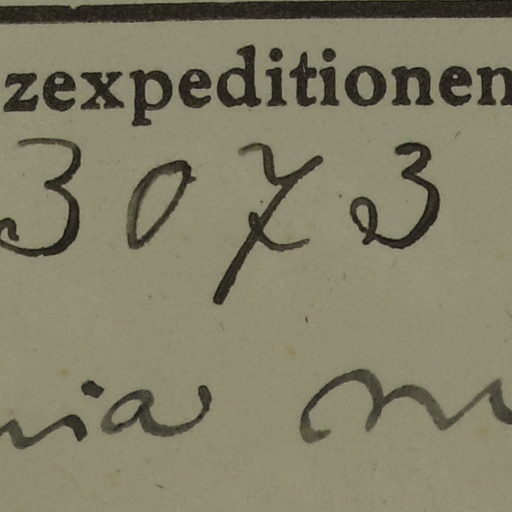 zexpeditionen
3073
nia m